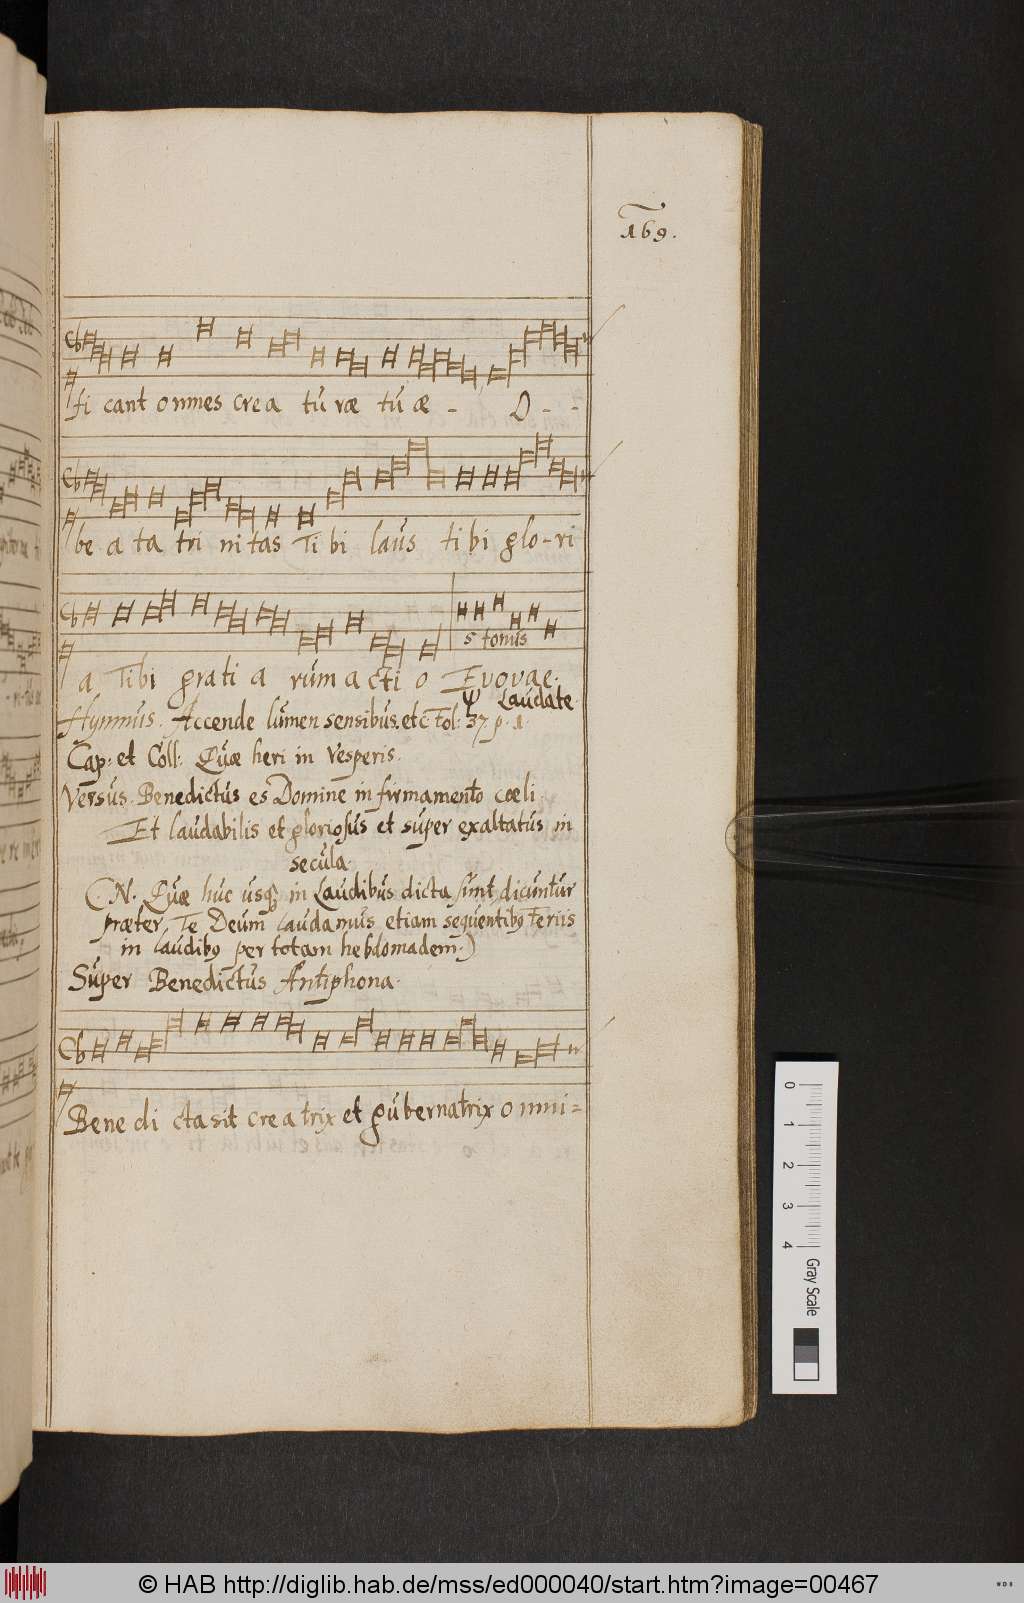 169.
fi cant omnes crea tu ræ tu æ - O - -
be a ta tri ni tas Ti bi laus ti bi glo-ri
5 tonus
a, Tibi grati a rum acti o Evovae.
Ψ Laudate
Hymnus. Accende lumen sensibus. etc Fol: 37. p. 1.
Cap: et Coll: Quæ heri in Vesperis.
Versus. Benedictus es Domine in firmamento cœli
Et laudabilis et gloriosus et super exaltatus in
secula.
(N. Quæ huc usq; in Laudibus dicta sunt, dicuntur
præter, Te Deum laudamus, etiam sequentibꝰ feriis
in laudibꝰ per totam hebdomadem.)
Super Benedictus Antiphona.
Bene di cta sit creatrix et gubernatrix omni=
0
1
2
3
4
Gray Scale
© HAB http://diglib.hab.de/mss/ed000040/start.htm?image=00467